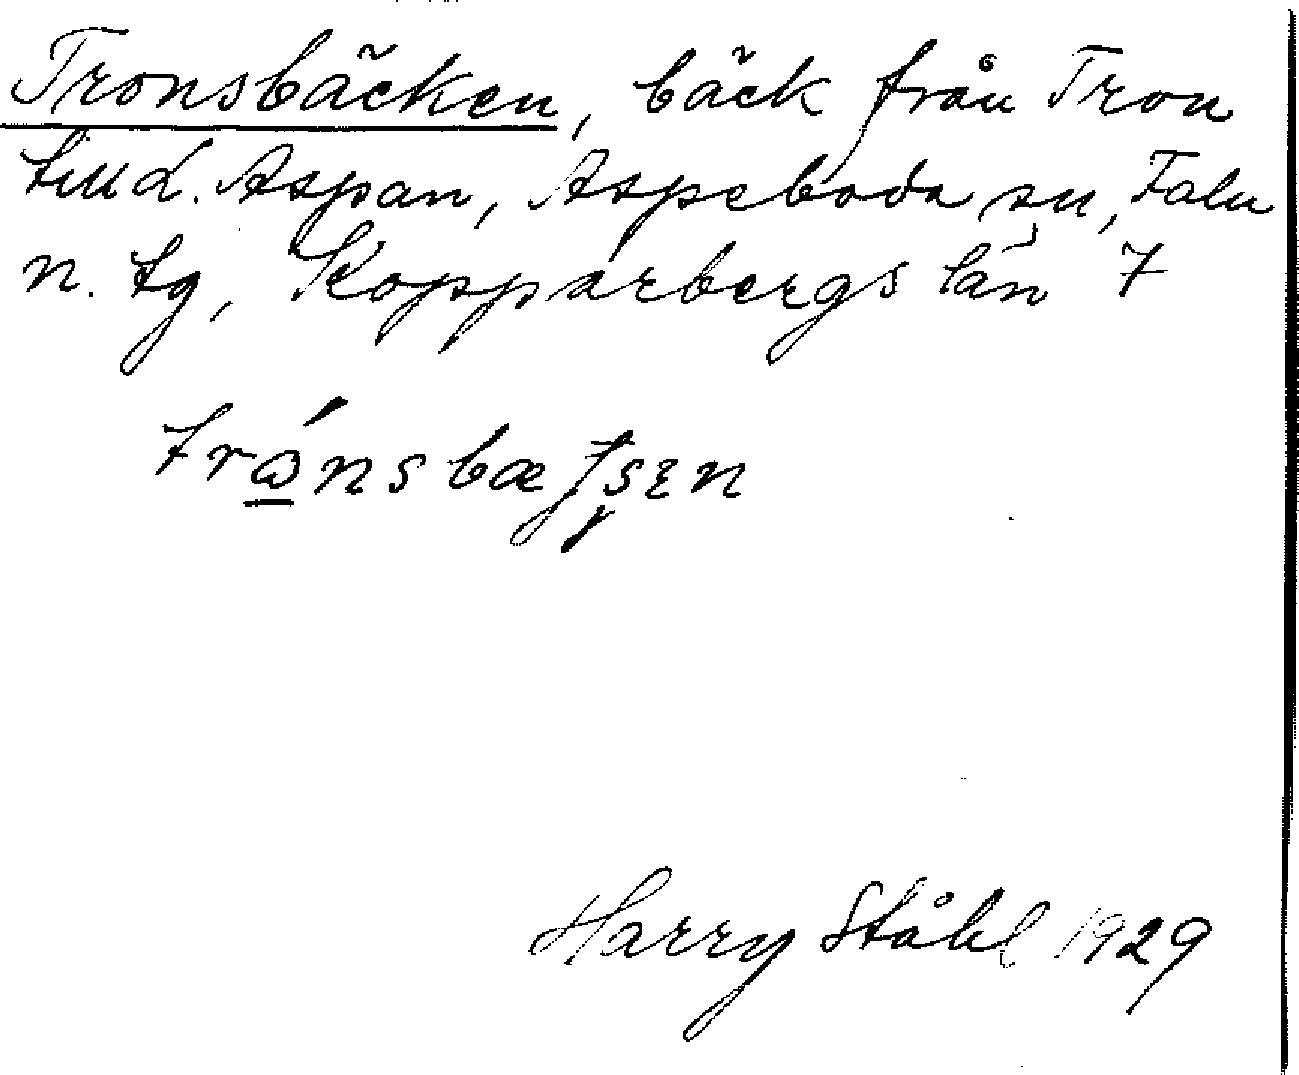 Tronsbäcken, bäck från Tron
till L. Aspan, Aspeboda sn, Falu
n. tg, Kopparbergs län 7
Harry Ståhl 1929